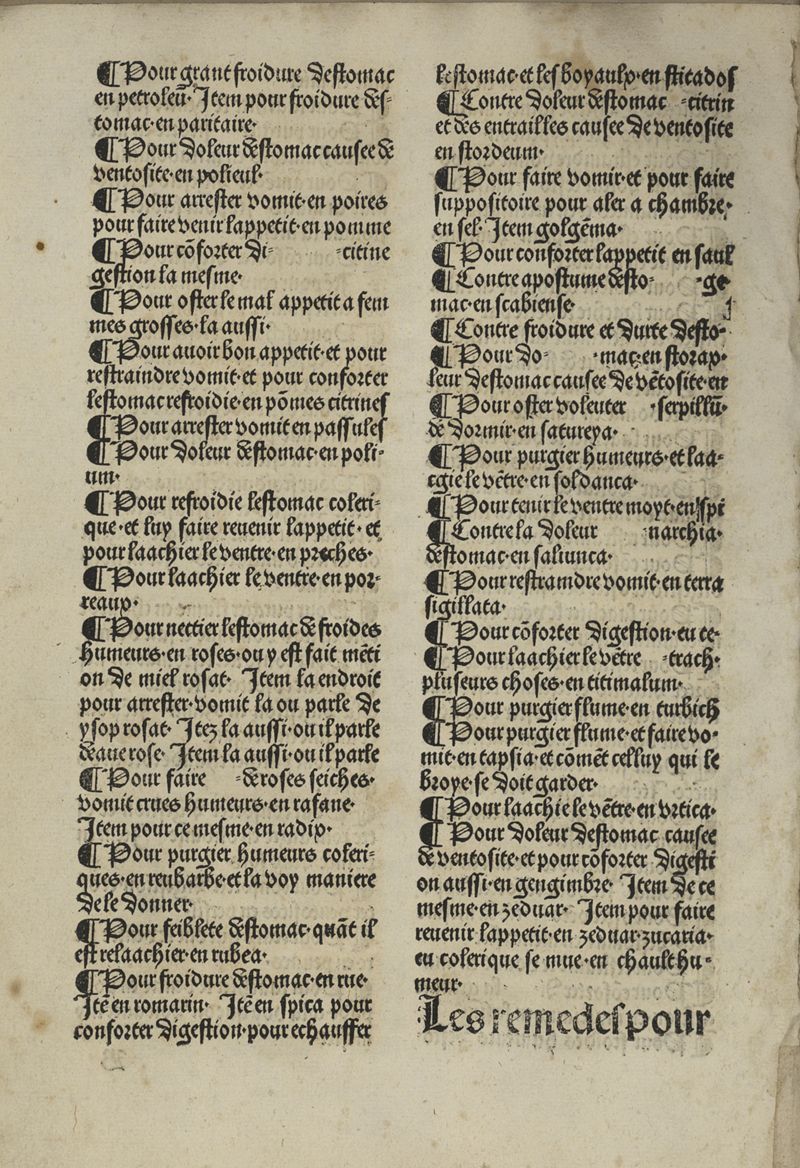 ¶ Pour grant froidure destomac
en petroleū. Item pour froidure des-
tomac. en paritaire.
¶ Pour doleur destomac causee de
ventosite. en polieul.
¶ Pour arrester vomit. en poires
pour faire venir lappetit. en pomme
¶ Pour cōforter di- -citine
gestion la mesme.
¶ Pour oster le mal appetit a fem
mes grosses. la aussi.
¶ Pour auoir bon appetit. et pour
restraindre vomit. et pour conforter
lestomac refroidie. en pōmes citrines
¶ Pour arrester vomit en passules
¶ Pour doleur destomac. en poli-
um.
¶ Pour refroidie lestomac coleri-
que. et luy faire reuenir lappetit. et
pour laachier le ventre. en presches.
¶ Pour laachier le ventre. en por-
reaux.
¶ Pour nectier lestomac de froides
humeurs. en roses. ou y est fait mēti
on de miel rosat. Item la endroit
pour arrester. vomit la ou parle de
ysop rosat. Itez la aussi. ou il parle
deaue rose. Item la aussi. ou il parle
¶ Pour faire -de roses seiches.
vomit crues humeurs. en rafane.
Item pour ce mesme. en radix.
¶ Pour purgier humeurs coleri-
ques. en reubarbe. et la voy maniere
de le donner.
¶ Pour feiblete destomac. quāt il
est relaachier. en rubea.
¶ Pour froidure destomac. en rue.
Itē en romarin. Itē en spica pour
conforter digestion. pour echauffer
lestomac. et les boyaulx. en sticados
¶ Contre doleur destomac -citrin
et des entrailles causee de ventosite
en stordeum.
¶ Pour faire vomir. et pour faire
suppositoire pour aler a chambre.
en sel. Item golgēma.
¶ Pour conforter lappetit en saul
¶ Contre apostume desto- -ge
mac. en scabiense.
¶ Contre froidure et durte desto-
¶ Pour do- -mac. en storax.
leur destomac causee de vētosite. en
¶ Pour oster volenter -serpillū.
de dormir. en satureya.
¶ Pour purgier humeurs. et laa-
cgie le vētre. en soldanca.
¶ Pour tenir le ventre moyt. en spi
¶ Contre la doleur narchia.
destomac. en saliunca.
¶ Pour restramdre vomit. en terra
sigillata.
¶ Pour cōforter digestion. eu te-
¶ Pour laachier le vētre -trach.
pluseurs choses. en titimalum.
¶ Pour purgier flume. en turbich
¶ Pour purgier flume. et faire vo-
mit. en tapsia. et cōmēt celluy qui le
broye. se doit garder.
¶ Pour laachie le vētre. en vrtica.
¶ Pour doleur destomac causee
de ventosite. et pour cōforter digesti
on aussi. en gengimbre. Item de ce
mesme. en zeduar. Item pour faire
reuenir lappetit. en zeduar. zucaria.
eu colerique se mue. en chault hu-
meur.
Les remedes pour